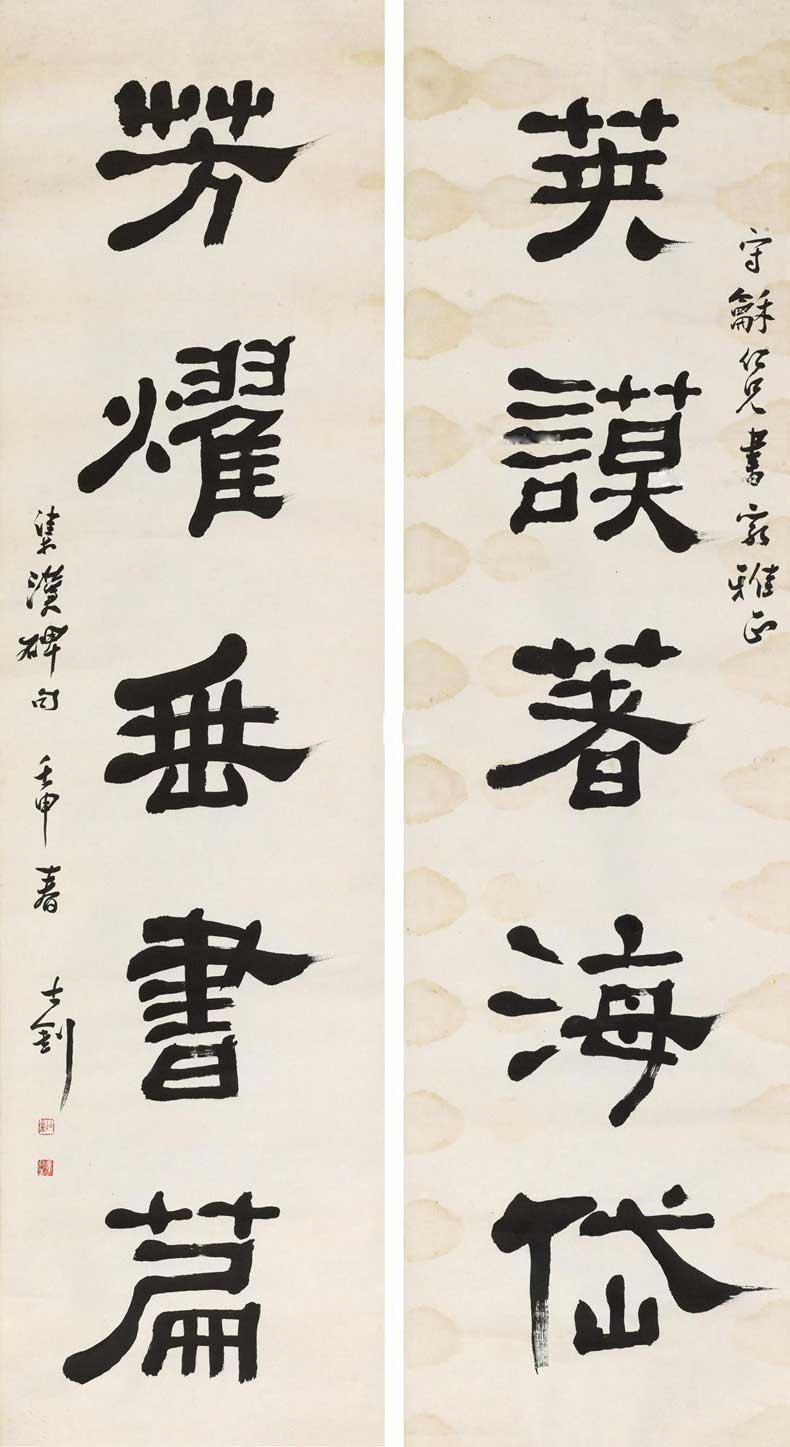 守龢仁兄書家雅正
英謨著海岱
芳燿垂書篇
集漢碑句 壬申春 士釗